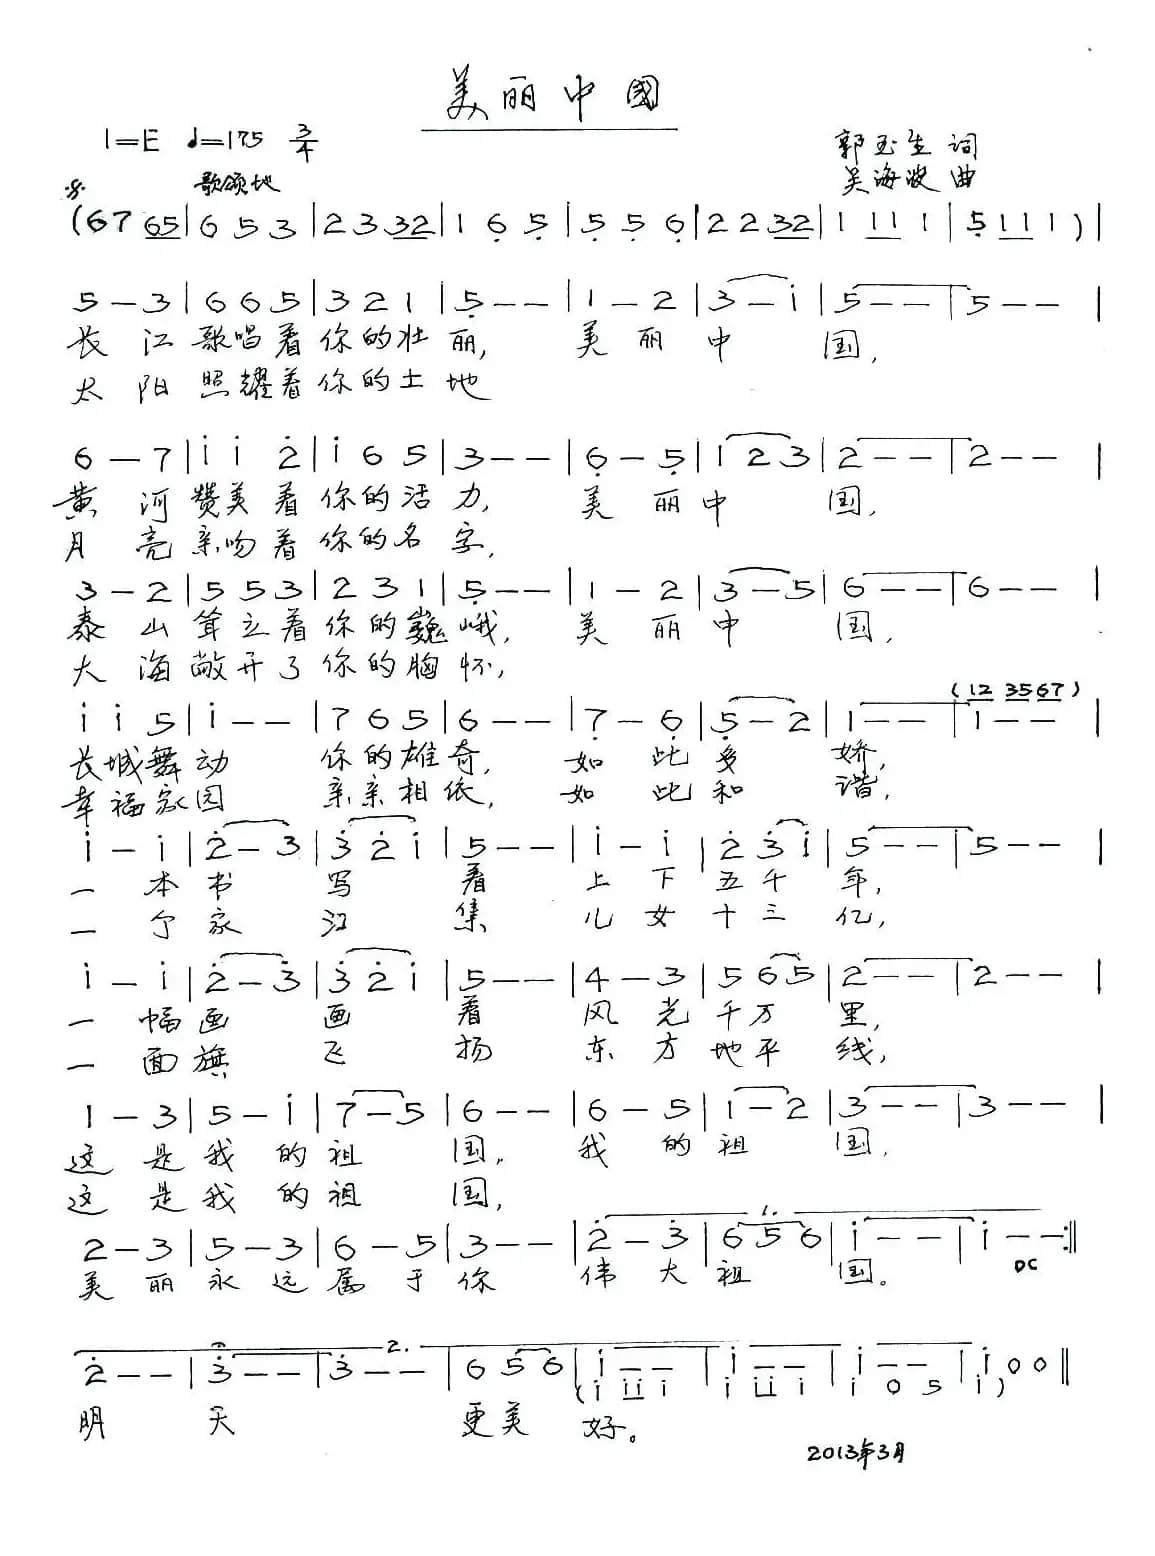 美丽中國
1=E ♩=175 3/4
郭玉生 词
歌颂地
吴海波 曲
(6 7 65 | 6 5 3 | 2 3 32 | 1 6̣ 5̣ | 5̣ 5̣ 6̣ | 2 2 32 | 1 11 1 | 5̣ 11 1 ) |
5 - 3 | 6 6 5 | 3 2 1 | 5̣ - - | 1 - 2 | 3 - i | 5 - - | 5 - - |
长江歌唱着你的壮丽, 美丽中国,
太阳照耀着你的土地
6 - 7 | i i 2̇ | i 6 5 | 3 - - | 6̣ - 5̣ | 1 2 3 | 2 - - | 2 - - |
黄河赞美着你的活力, 美丽中国,
月亮亲吻着你的名字,
3 - 2 | 5 5 3 | 2 3 1 | 5̣ - - | 1 - 2 | 3 - 5 | 6 - - | 6 - - |
泰山耸立着你的巍峨, 美丽中国,
大海敞开了你的胸怀,
(12 3567)
i i 5 | i - - | 7 6 5 | 6 - - | 7̣ - 6̣ | 5̣ - 2 | 1 - - | 1 - - |
长城舞动 你的雄奇, 如此多娇,
幸福家园 亲亲相依, 如此和谐,
i - i | 2̇ - 3 | 3̇ 2̇ i | 5 - - | i - i | 2̇ 3̇ i | 5 - - | 5 - - |
一本书写着 上下五千年,
一个家汇集 儿女十三亿,
i - i | 2̇ - 3̇ | 3̇ 2̇ i | 5 - - | 4 - 3 | 5 6 5 | 2 - - | 2 - - |
一幅画画着 风光千万里,
一面旗飞扬 东方地平线,
1 - 3 | 5 - i | 7 - 5 | 6 - - | 6 - 5 | 1 - 2 | 3 - - | 3 - - |
这是我的祖国, 我的祖国,
这是我的祖国,
1.
2 - 3 | 5 - 3 | 6 - 5 | 3 - - | 2̇ - 3̇ | 6 5 6 | i - - | i - - :‖
美丽永远属于你 伟大祖国。 DC
2.
2̇ - - | 3̇ - - | 3̇ - - | 6 5 6 | i - - | i - - | i - - | i 0 0 ‖
(i ii i | i ii i | i 0 5 | i )
明天 更美好。
2013年3月